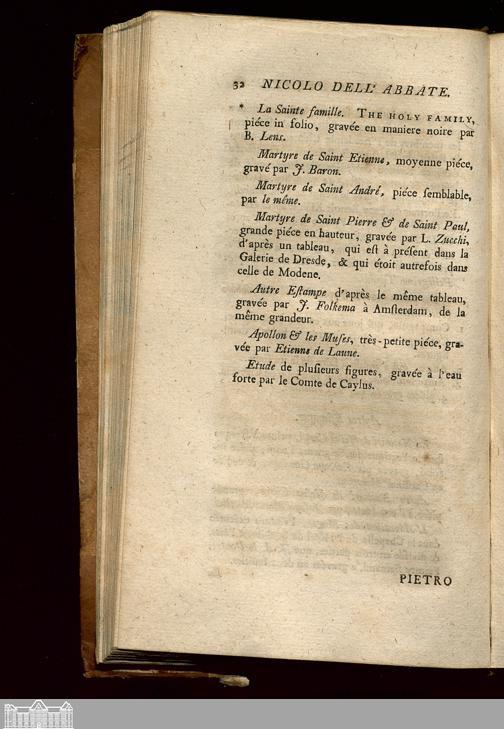 32 NICOLO DELL' ABBATE.
* La Sainte famille. THE HOLY FAMILY,
piéce in folio, gravée en maniere noire par
B. Lens.
Martyre de Saint Etienne, moyenne piéce,
gravé par J. Baron.
Martyre de Saint André, piéce ſemblable,
par le même.
Martyre de Saint Pierre & de Saint Paul,
grande piéce en hauteur, gravée par L. Zucchi,
d'après un tableau, qui eſt à préſent dans la
Galerie de Dresde, & qui étoit autrefois dans
celle de Modene.
Autre Eſtampe d'après le même tableau,
gravée par J. Folkema à Amſterdam, de la
même grandeur.
Apollon & les Muſes, très-petite piéce, gra-
vée par Etienne de Laune.
Etude de pluſieurs figures, gravée à l'eau
forte par le Comte de Caylus.
PIETRO